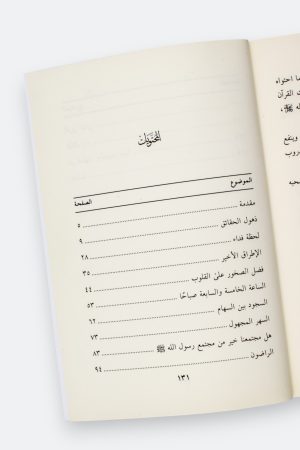 المحتويات
الموضوع الصفحة
مقدمة ٥
ذهول الحقائق ٩
لحظة فداء ٢٨
الإطراق الأخير ٣٥
فضل الصخور على القلوب ٤٤
الساعة الخامسة والسابعة صباحًا ٥٣
السجود بين السهام ٦٢
السهر المجهول ٧٣
هل مجتمعنا خير من مجتمع رسول الله ﷺ ٨٣
الراضون ٩٤
١٣١
ما احتواه
القرآن
ﷺ
وينفع